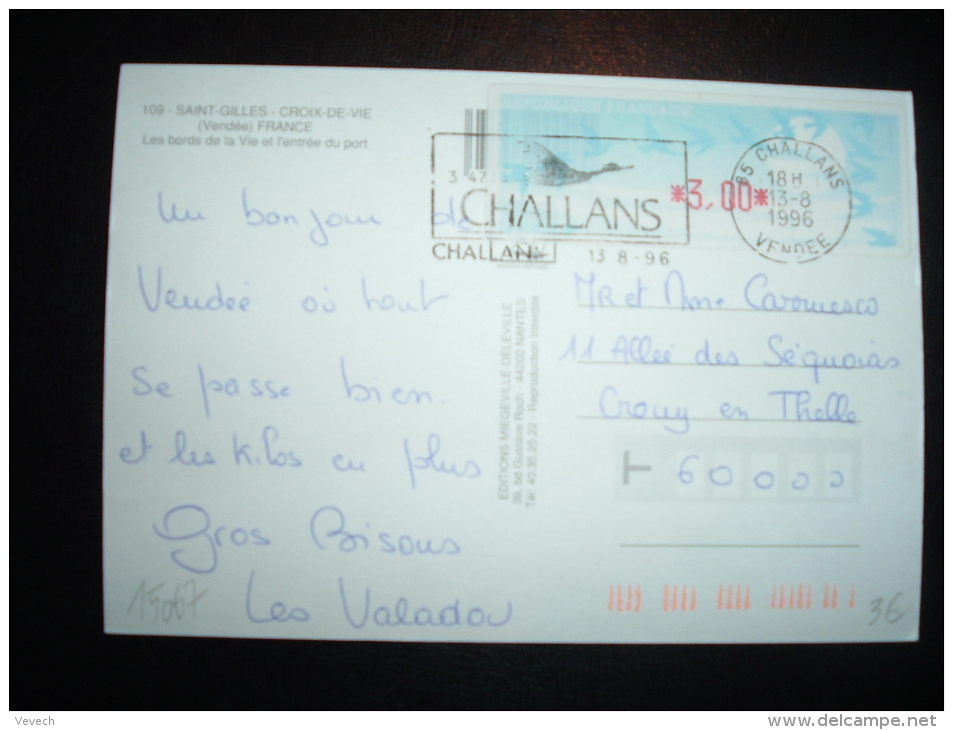 109 - SAINT-GILLES - CROIX-DE-VIE
(Vendée) FRANCE
Les bords de la Vie et l'entrée du port
REPUBLIQUE FRANCAISE
3 47
CHALLANS
CHALLANS 13 8-96
*3,00*
85 CHALLANS
18H
13-8
1996
VENDEE
Un bonjour de
Vendée où tout
Se passe bien.
et les Kilos en plus
Gros Bisous
Les Valadou
EDITIONS MIEGEVILLE-DELEVILLE
39, bd Gustave Roch - 44200 NANTES
Tél: 40.35.25.22 - Reproduction Interdite
MR et Mme Caromesco
11 Allée des Séquoias
Crouy en Thelle
60000
15067
36
Vevech
www.delcampe.net